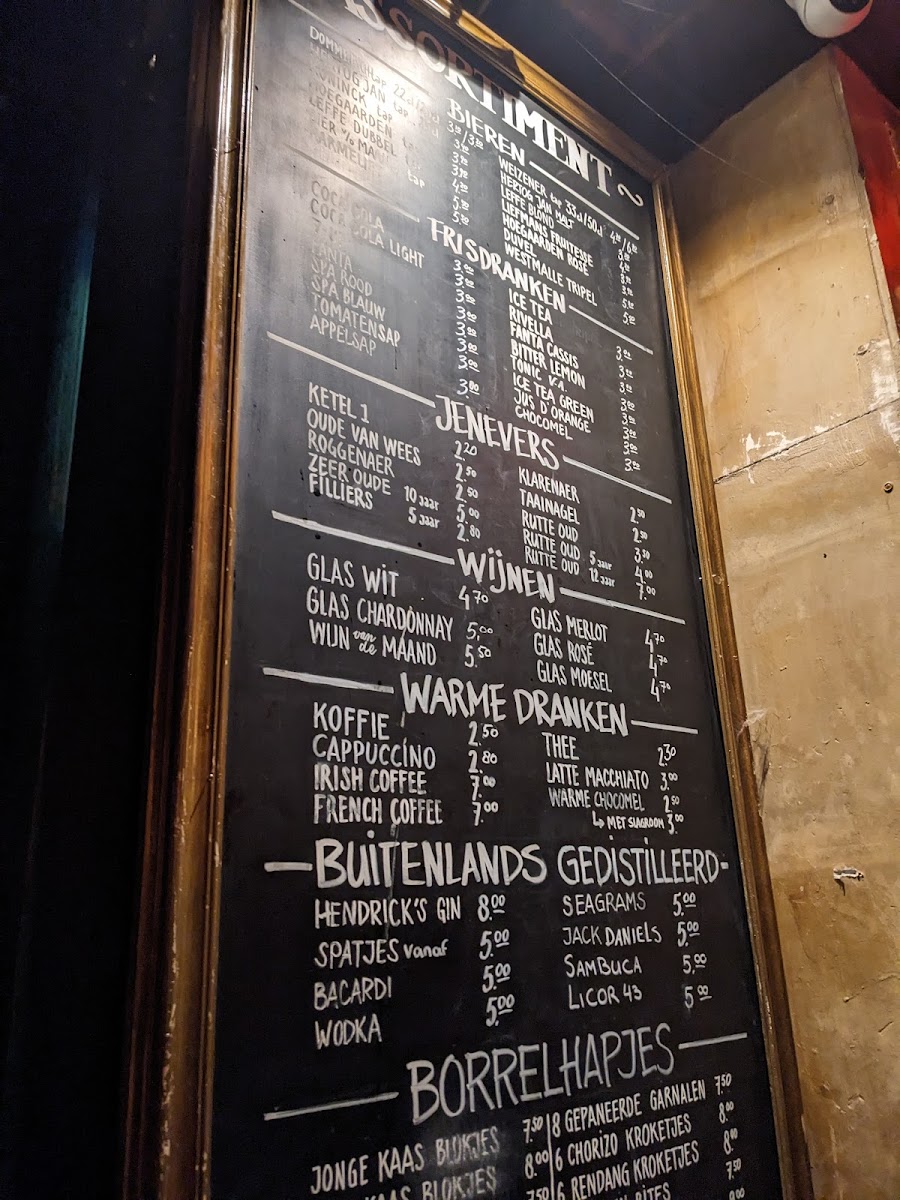 ASSORTIMENT
BIEREN
HOEGAARDEN
LEFFE DUBBEL
WEIZENER tap 33cl/50cl 4.00/6.00
HERTOG JAN MALT
LEFFE BLOND
LIEFMANS FRUITESSE
HOEGAARDEN ROSÉ
DUVEL
WESTMALLE TRIPEL
FRISDRANKEN
COCA COLA 3.00
COCA COLA LIGHT 3.00
FANTA 3.00
SPA ROOD 3.00
SPA BLAUW 3.00
TOMATENSAP
APPELSAP 3.00
ICE TEA 3.00
RIVELLA 3.00
FANTA CASSIS 3.00
BITTER LEMON 3.00
TONIC
ICE TEA GREEN 3.00
JUS D'ORANGE 3.00
CHOCOMEL 3.00
JENEVERS
KETEL 1 2.20
OUDE VAN WEES 2.50
ROGGENAER 2.50
ZEER OUDE 10 jaar 5.00
FILLIERS 5 jaar 2.80
KLARENAER 2.50
TAAINAGEL 2.50
RUTTE OUD 3.50
RUTTE OUD 5 jaar 4.00
RUTTE OUD 12 jaar 7.00
WIJNEN
GLAS WIT 4.70
GLAS CHARDONNAY 5.00
WIJN van de MAAND 5.50
GLAS MERLOT 4.70
GLAS ROSÉ 4.70
GLAS MOESEL 4.70
WARME DRANKEN
KOFFIE 2.50
CAPPUCCINO 2.80
IRISH COFFEE 7.00
FRENCH COFFEE 7.00
THEE 2.30
LATTE MACCHIATO 3.00
WARME CHOCOMEL 2.50
↳ MET SLAGROOM 3.00
BUITENLANDS GEDISTILLEERD
HENDRICK'S GIN 8.00
SPATJES vanaf 5.00
BACARDI 5.00
WODKA 5.00
SEAGRAMS 5.00
JACK DANIELS 5.00
SAMBUCA 5.00
LICOR 43 5.00
BORRELHAPJES
JONGE KAAS BLOKJES 7.50
KAAS BLOKJES 8.00
7.50
8 GEPANEERDE GARNALEN 7.50
6 CHORIZO KROKETJES 8.00
6 RENDANG KROKETJES 8.00
BITES 7.50